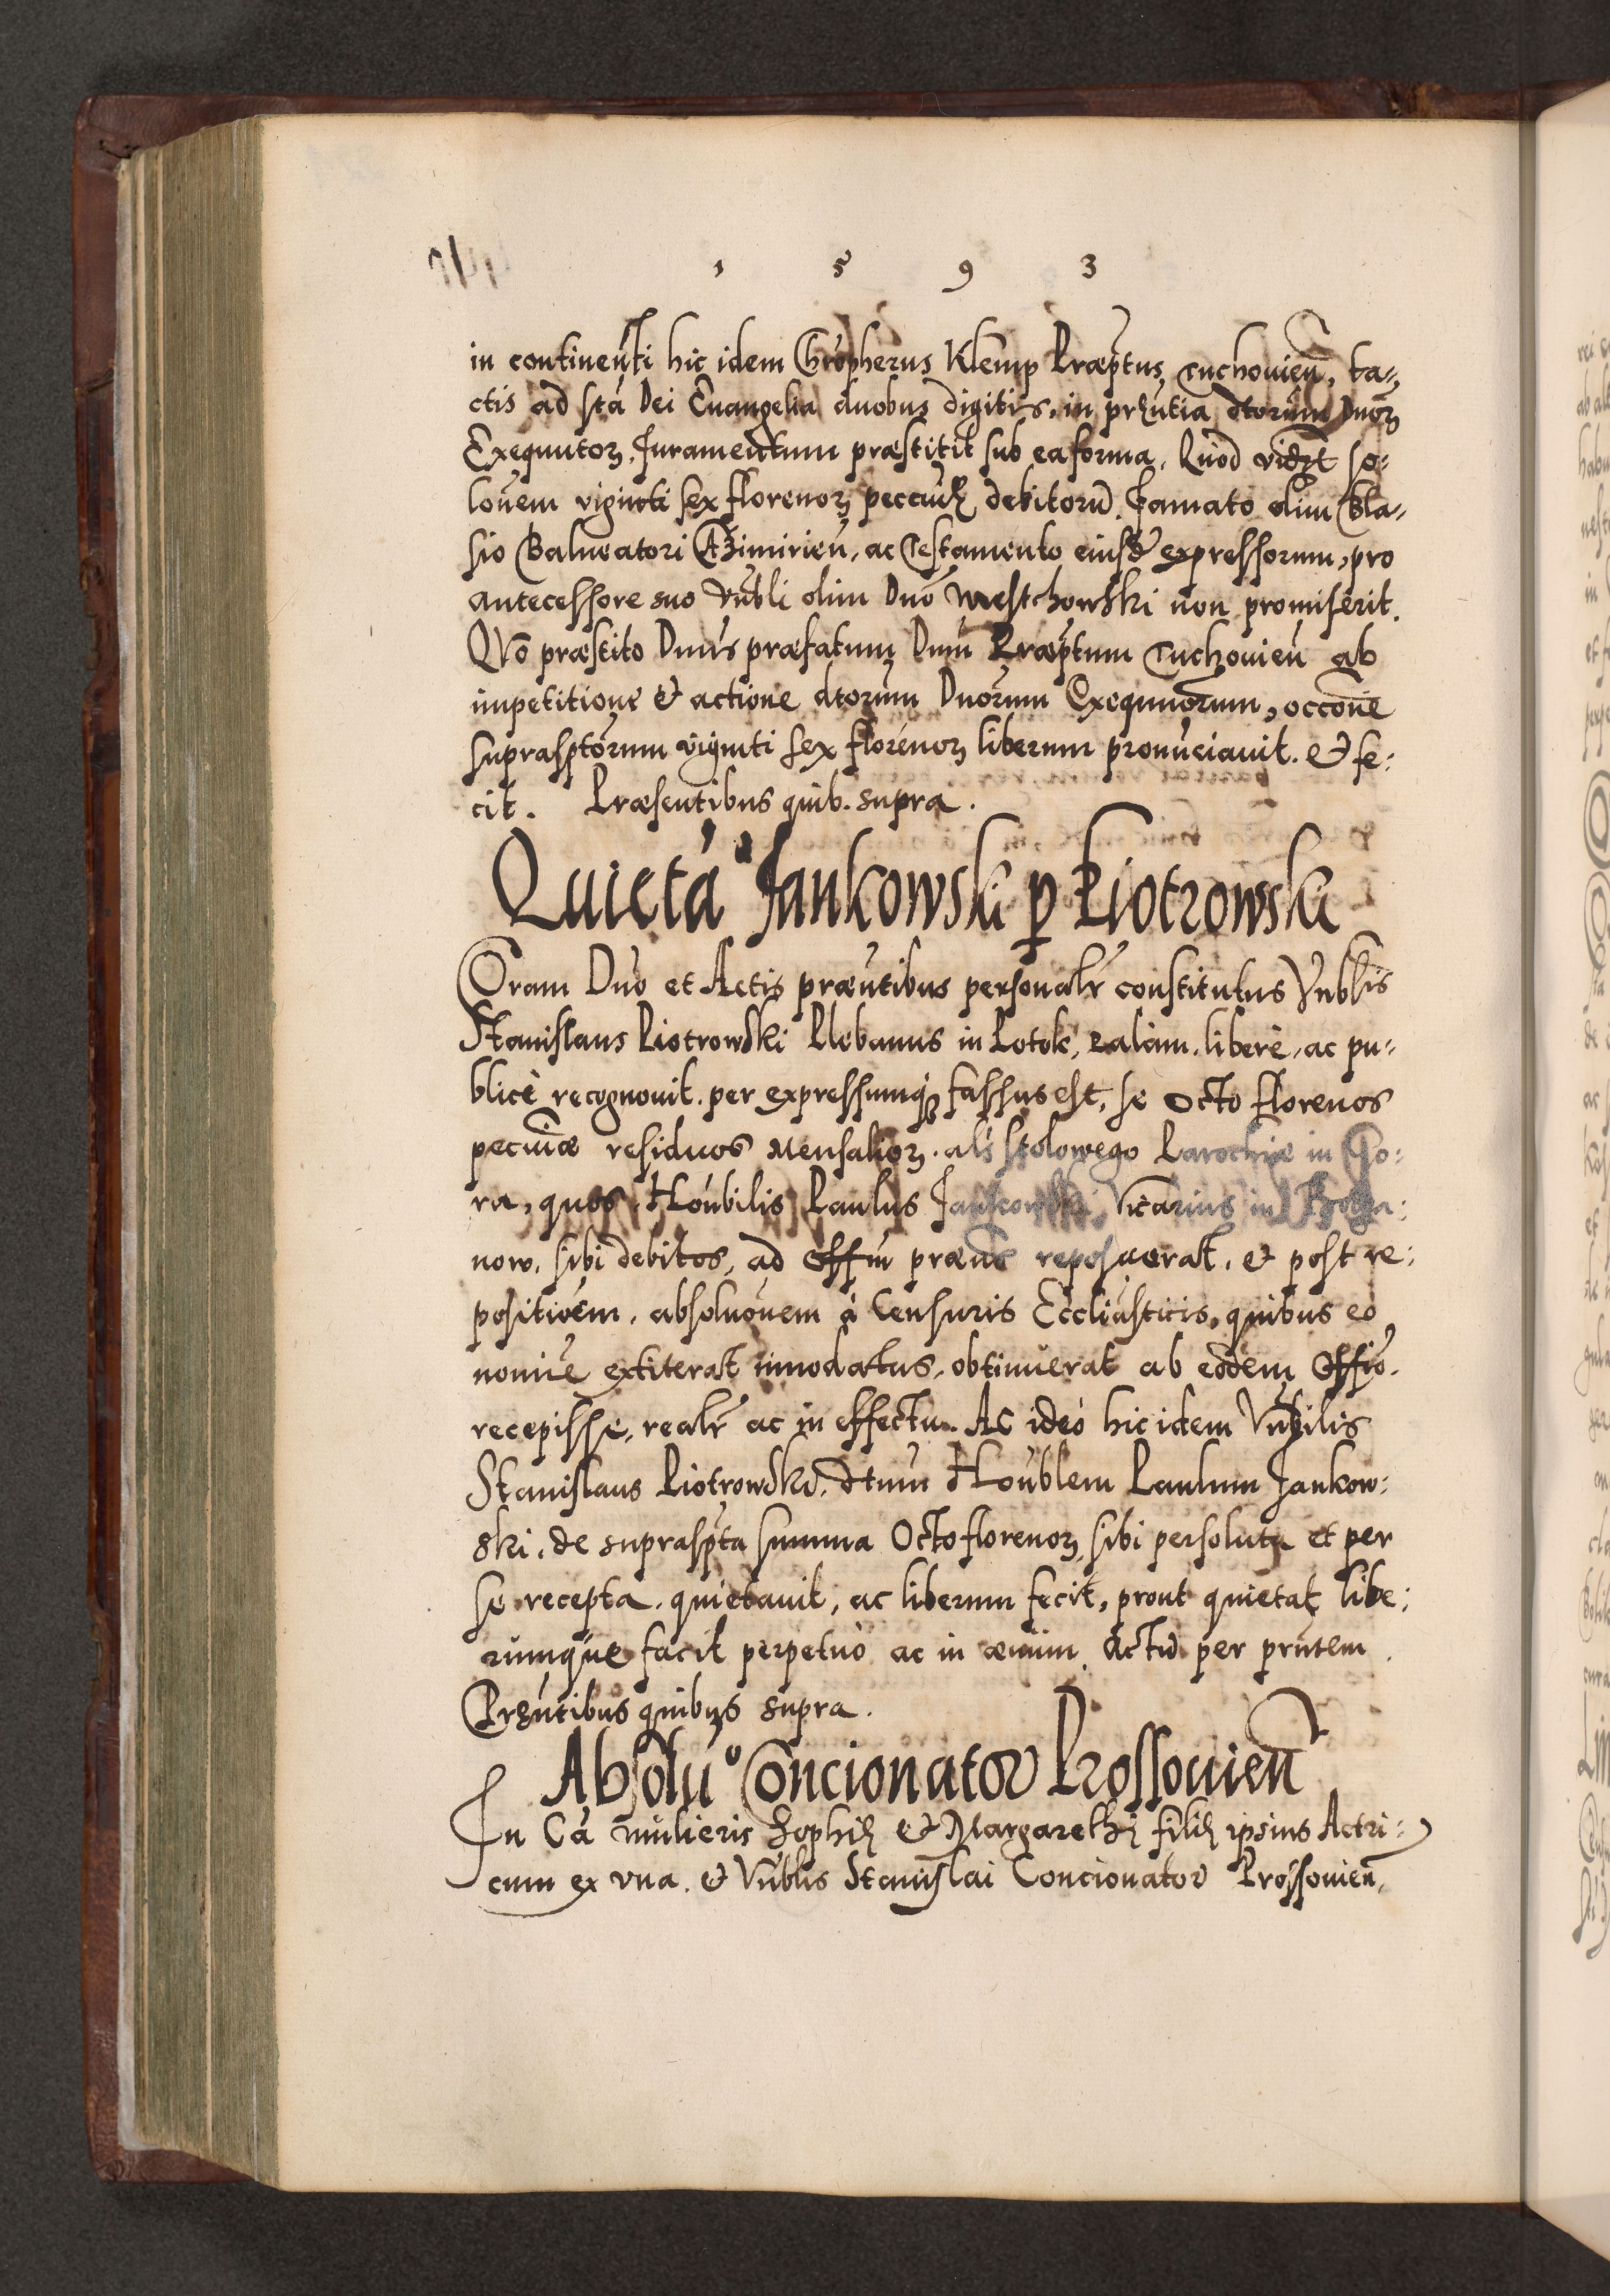 1 5 9 3
in continenti hic idem Chrõpherus Klemp Præptus Tuchovieñ, ta-
ctis ad sta Dei Evangelia duobus digitis, in prñtia dtorum Dnorꝫ
Exequutorꝫ, Juramentum præstitit sub ea forma, Quod vidzt so-
lonem viginti sex florenorꝫ peccuñ debitorũ Famato olim Bla-
sio Balneatori Cazimirieñ, ac Testamento eiusdẽ expressorum, pro
antecessore suo Vñbli olim Dño Westchowski non promiserit.
Quo præstito Dnus præfatum Dnum Præptum Tuchovieñ ab
impetitione et actione dtorum Dnorum Exequutorum, occõne
suprasptorum viginti sex florenorꝫ liberum pronũciavit. et fe:
cit. Præsentibus quib. supra.
Quieta Jankowski ꝑ Piotrowski
Coram Dño et Actis præntibus personalr̃ constitutus Vnblis
Stanislaus Piotrowski Plebanus in Potok, palam, liberè, ac pu-
blicè recognovit, per expressumqꝫ fassus est, se octo florenos
pecuniæ residuos Mensaliorꝫ. als stolowego Parochiæ in Go:
ra, quos Honbilis Paulus Jankowski, Vicarius in
now, sibi debitos, ad Offm præns reposuerat, et post re:
positioẽm, absoluõnem à Censuris Eccliasticis, quibus eo
nomine extiterat innodatus, obtinuerat ab eodem Offio.
recepisse, realr̃ ac in effectu. Ac ideò hic idem Vnbilis
Stanislaus Piotrowski, dtum Honblem Paulum Jankow:
ski, de supraspta summa Octo florenorꝫ sibi persoluta et per
se recepta, quietavit, ac liberum fecit, prout quietat libe:
rumque facit perpetuò ac in ævum. Actu per prñtem.
Prñtibus quibus supra.
Absolũo Concionator Prossovieñ
In Ca mulieris Zophię et Margarethę filię ipsius Actri:
cum ex vna, et Vnblis Stanislai Concionator Prossovieñ,